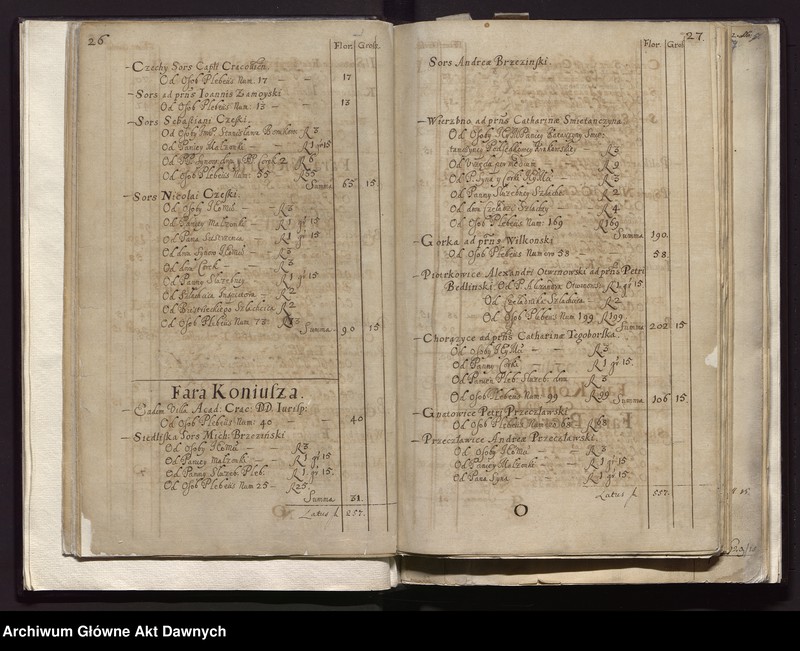 26
Flor. Grosz.
Czechy Sors Capli Cracovien.
Od Osob Plebeus Num. 17 — — 17
Sors ad prñs Ioannis Zamoyski
Od Osob Plebeus Num. 13 — — 13
Sors Sebastiani Czeski.
Od Osoby Imp. Stanisława R 3
Od Paniey Małzonki — R 1 gr 15
Od PP. Synow dwu y PP. Corek 2 R 6
Od Osob Plebeus Num. 55 R 55
Summa 65. 15
Sors Nicolai Czeski.
Od Osoby IEoMći — R 3
Od Paniey Małzonki — R 1 gr 15
Od Pana Siestrzenca — R 1 gr 15
Od dwu Synow IEoMći — R 3
Od dwu Corek — R 3
Od Panny Słuzebney R 1 gr 15
Od Szlachcica — R 2
Od Szlachcica R 2
Od Osob Plebeus Num. 73 — R 73
Summa 90 15
Fara Koniusza.
Eadem Villa Acad: Crac: DD. Iurisp:
Od Osob Plebeus Num: 40 — — 40
Siedliska Sors Mich: Brzezinski
Od Osoby IEoMći — R 3
Od Paniey Małzonki — R 1 gr 15
Od Panny Słuzeb: Pleb: R 1 gr 15.
Od Osob Plebeus Num 25 — R 25
Summa 31.
Latus f. 257.
27.
Flor. Gros
Sors Andreæ Brzezinski.
Wierzbno ad prñs Catharinæ Smietanczyna
Od Osoby IEyMći Paniey Katarzyny Smie-
tanczyney Podsędkowey Krakowskiey R 3
Od per medium — R 9
Od P. Syna y Corki IEyMći — R 3
Od Panny Słuzebney Szlachc: R 2
Od dwu Czeladzi Szlachec: R 4
Od Osob Plebeus Num: 169 R 169
Summa 190.
Gorka ad prñs Wilkonski
Od Osob Plebeus Numero 58 — — 58.
Piotrkowice Alexandri Otwinowski ad prñs Petri
Bedlinski. Od P. Alexandra Otwinows: R 1 gr 15.
Od Czeladnika Szlachcica R 2
Od Osob Plebeus Num 199 R 199
Summa 202 15.
Chorązyce ad prñs Catharinæ Tegoborska.
Od Osoby IEyMći — R 3
Od Panny Corki — R 1 gr 15.
Od Panien Pleb: Słuzeb: dwu R 3
Od Osob Plebeus Num: 99 R 99
Summa 106 15.
Gnatowice Petri Przeczławski
Od Osob Plebeus Numero 68 R 68
Przeczławice Andreæ Przeczławski.
Od Osoby IEoMći — R 3
Od Paniey Małzonki — R 1 gr 15
Od Pana Syna — R 1 gr 15.
Latus f. 557.
O
Archiwum Główne Akt Dawnych